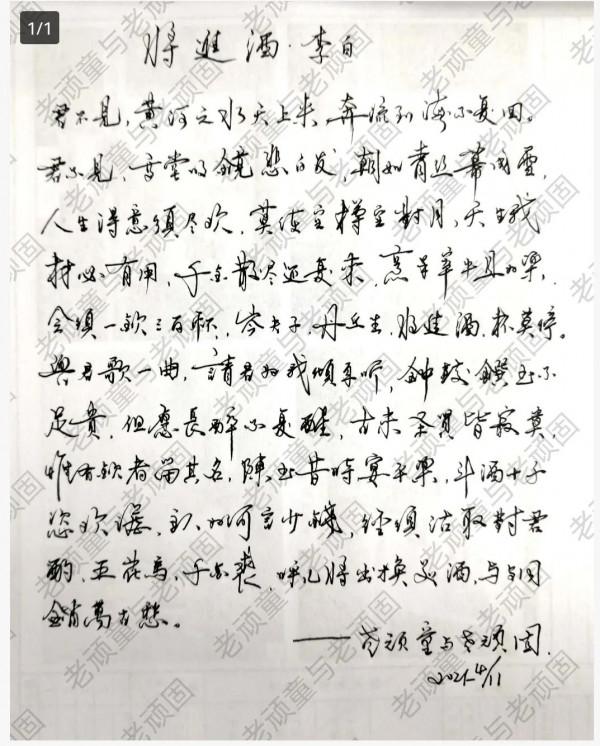 1/1
将進酒·李白
君不見,黄河之水天上来,奔流到海不复回。
君不見,高堂明鏡悲白发,朝如青丝暮成雪,
人生得意須尽欢,莫使空樽空對月,天生我
材必有用,千金散尽还复来,烹羊宰牛且为樂,
会須一飲三百杯,岑夫子,丹丘生,将進酒,杯莫停。
與君歌一曲,請君为我傾耳听,钟鼓饌玉不
足貴,但應長醉不复醒,古来圣贤皆寂寞,
惟有飲者留其名,陳王昔時宴平樂,斗酒十千
恣欢谑,主人何言少錢,經須沽取對君
酌,五花馬,千金裘,呼儿将出换美酒,与同
銷萬古愁。
——老顽童与老顽固
2021.4/11
老顽童与老顽固